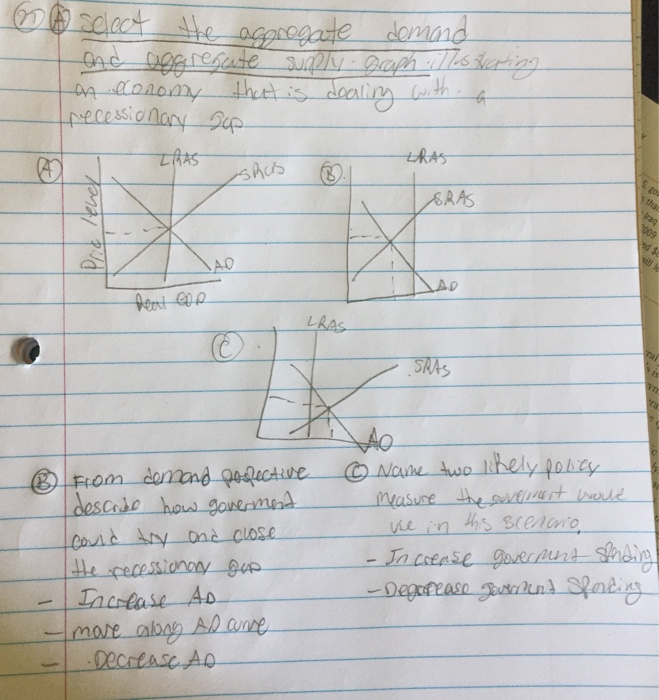 A select the aggregate demand
and aggregate supply graph illustrating
an economy that is dealing with a
recessionary Gap
A
LRAS
SRAS
Price level
AD
Real GDP
B
LRAS
SRAS
AD
C
LRAS
SRAS
AD
B From demand perspective
describe how goverment
could try and close
the recessionary gap
- Increase AD
- move along AD curve
- Decrease AD
C Name two likely policy
measure the goverment would
use in this scenario.
- Increase goverment Spending
- Degcrease goverment Spending